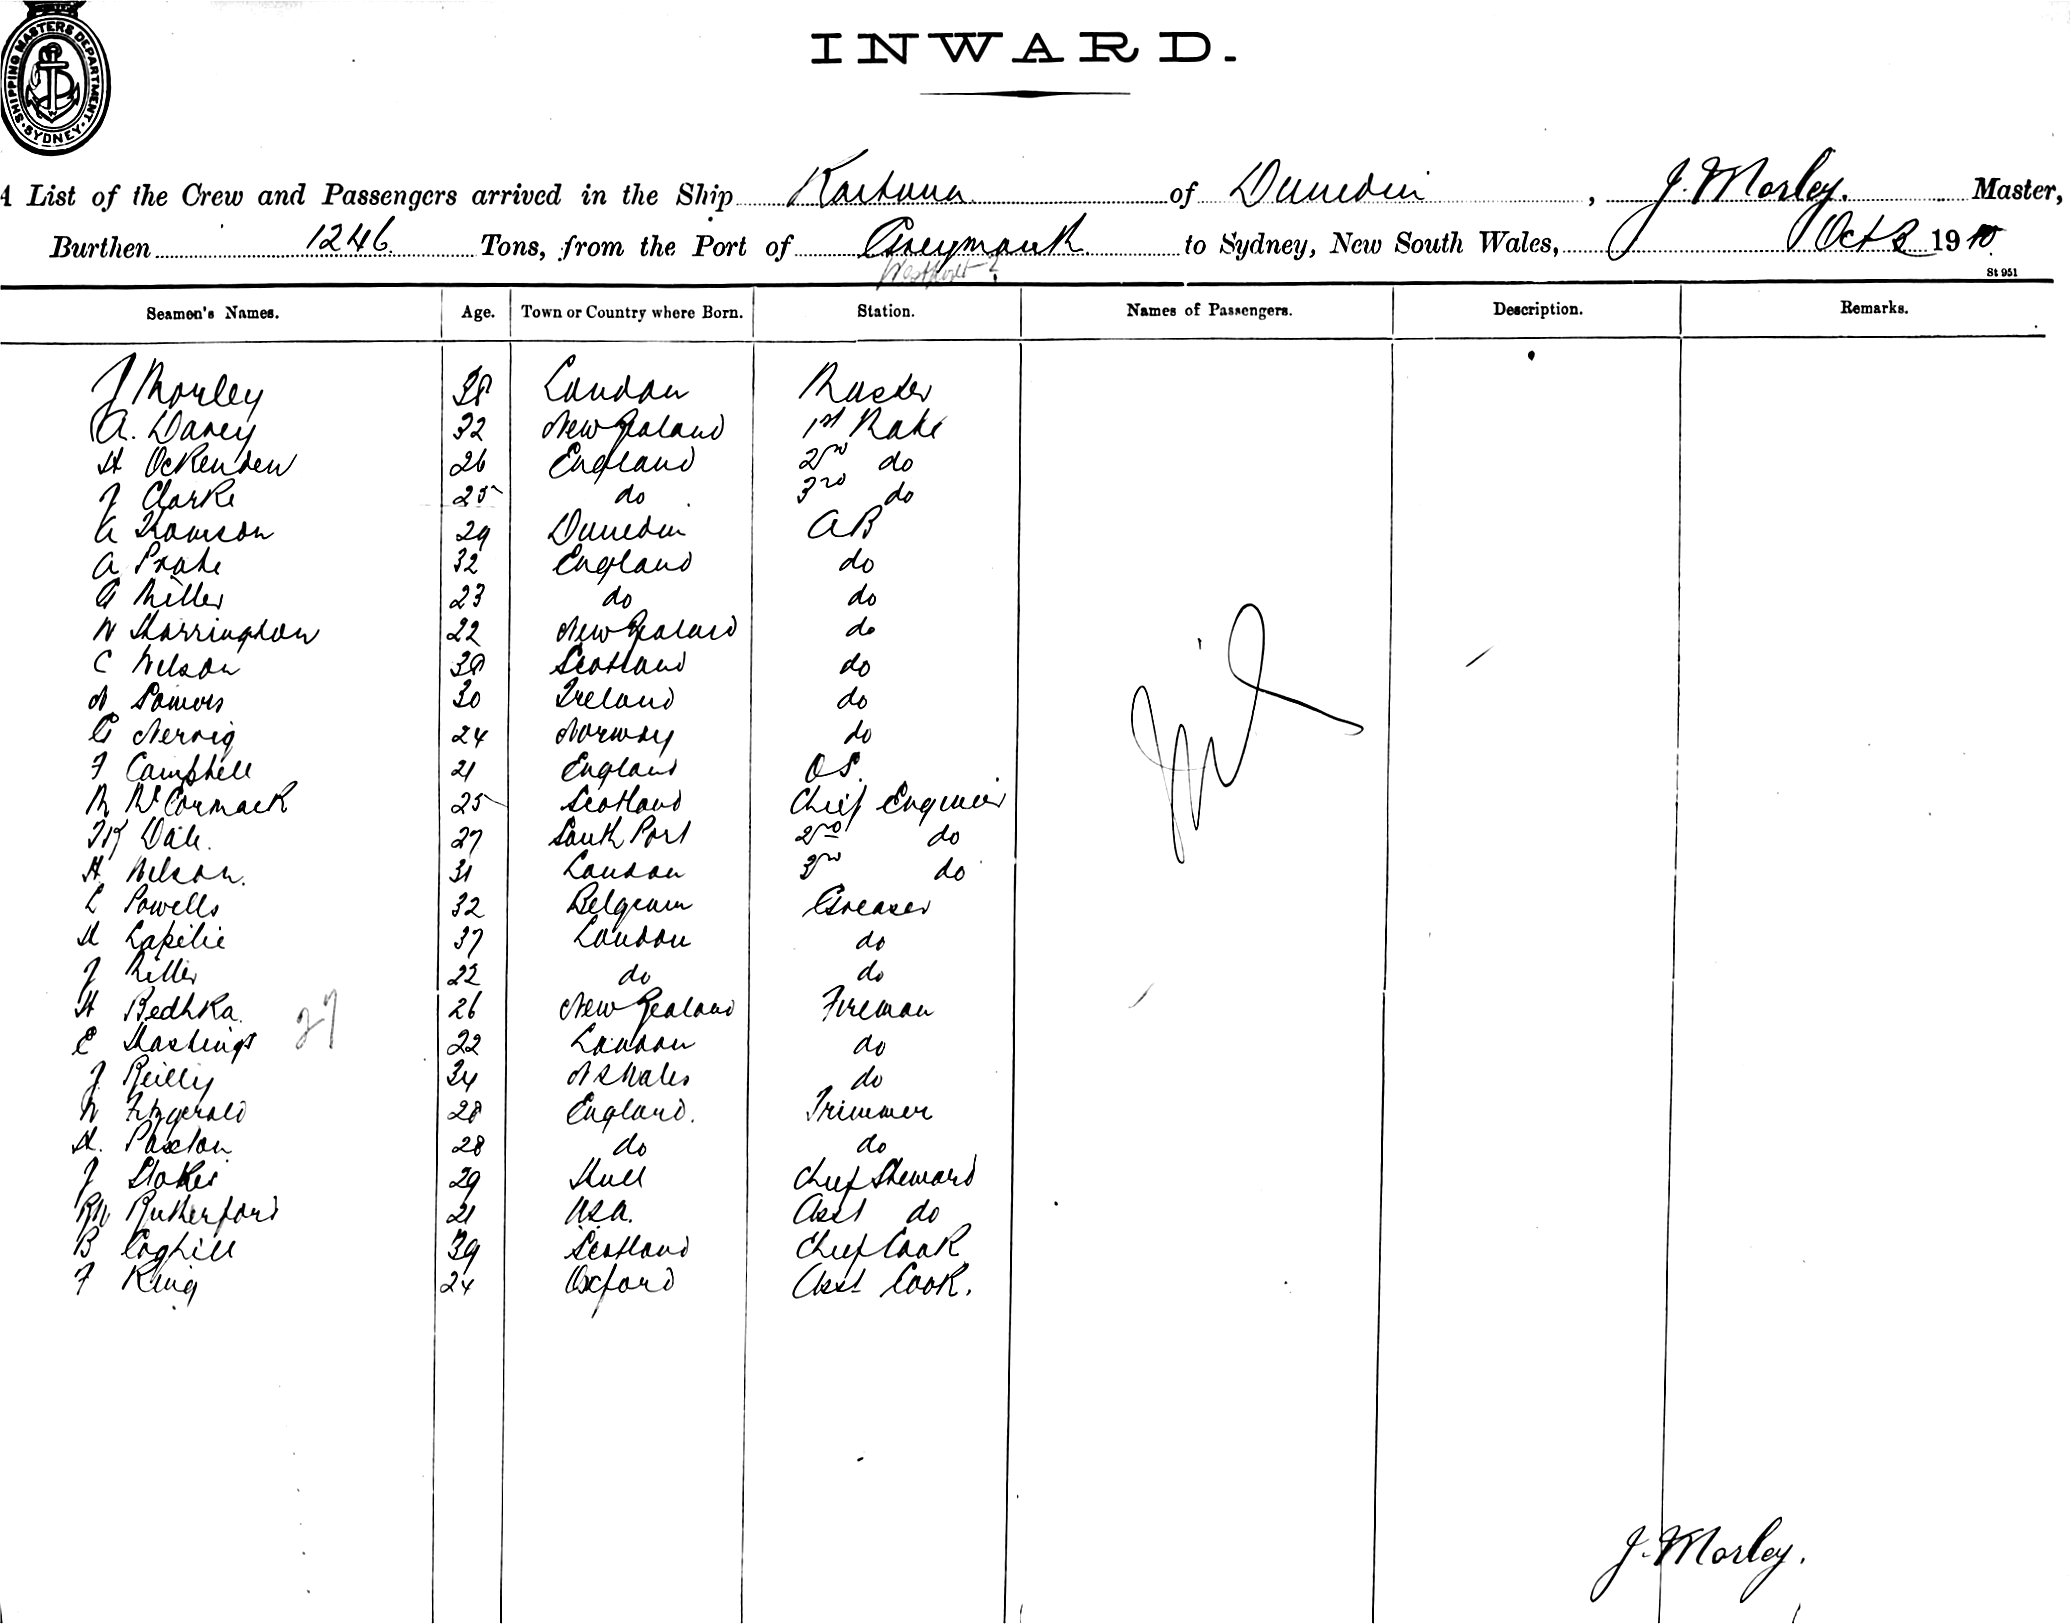 SHIPPING MASTERS DEPARTMENT. SYDNEY.
INWARD.
A List of the Crew and Passengers arrived in the Ship Kaituna of Dunedin, J. Morley. Master,
Burthen 1246. Tons, from the Port of Greymouth to Sydney, New South Wales, Oct 2 1910.
Westport ?
St 951
Seamen's Names. Age. Town or Country where Born. Station. Names of Passengers. Description. Remarks.
J Morley 38 London Master
A. Davey 32 New Zealand 1st Mate
H Ockenden 26 England 2nd do
J Clarke 25 do 3rd do
A Thomson 29 Dunedin AB
A 32 England do
G Miller 23 do do
W Harrington 22 New Zealand do
C Nelson 38 Scotland do
N Somers 30 Ireland do
C Nervig 24 Norway do
F Campbell 21 England OS.
M McCormack 25 Scotland Chief Engineer
Dale. 27 South Port 2nd do
H Nelson. 31 London 3rd do
L Powells 32 Belgium Greaser
H 37 London do
J Miller 22 do do
H Bedhka. 26 New Zealand Fireman
27
E Hastings 22 London do
J Reilly 34 N S Wales do
W Fitzgerald 28 England. Trimmer
H. Paxton 28 do do
J Stokes 29 Hull Chief Steward
RW Rutherford 21 USA. Asst do
B Coghill 39 Scotland Chief Cook
F King 24 Oxford Asst Cook.
Nil
J. Morley.